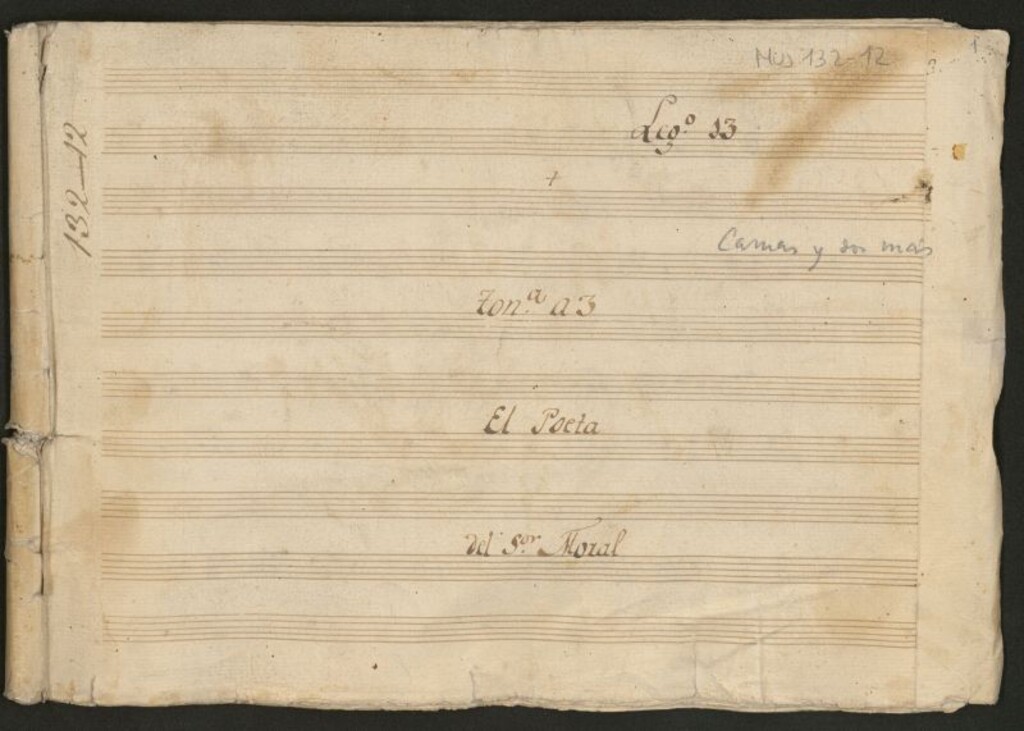 Mus 132-12
132-12
Leg.º 13
+
Camas y dos más
Ton.ª a 3
El Poeta
del S.or Moral